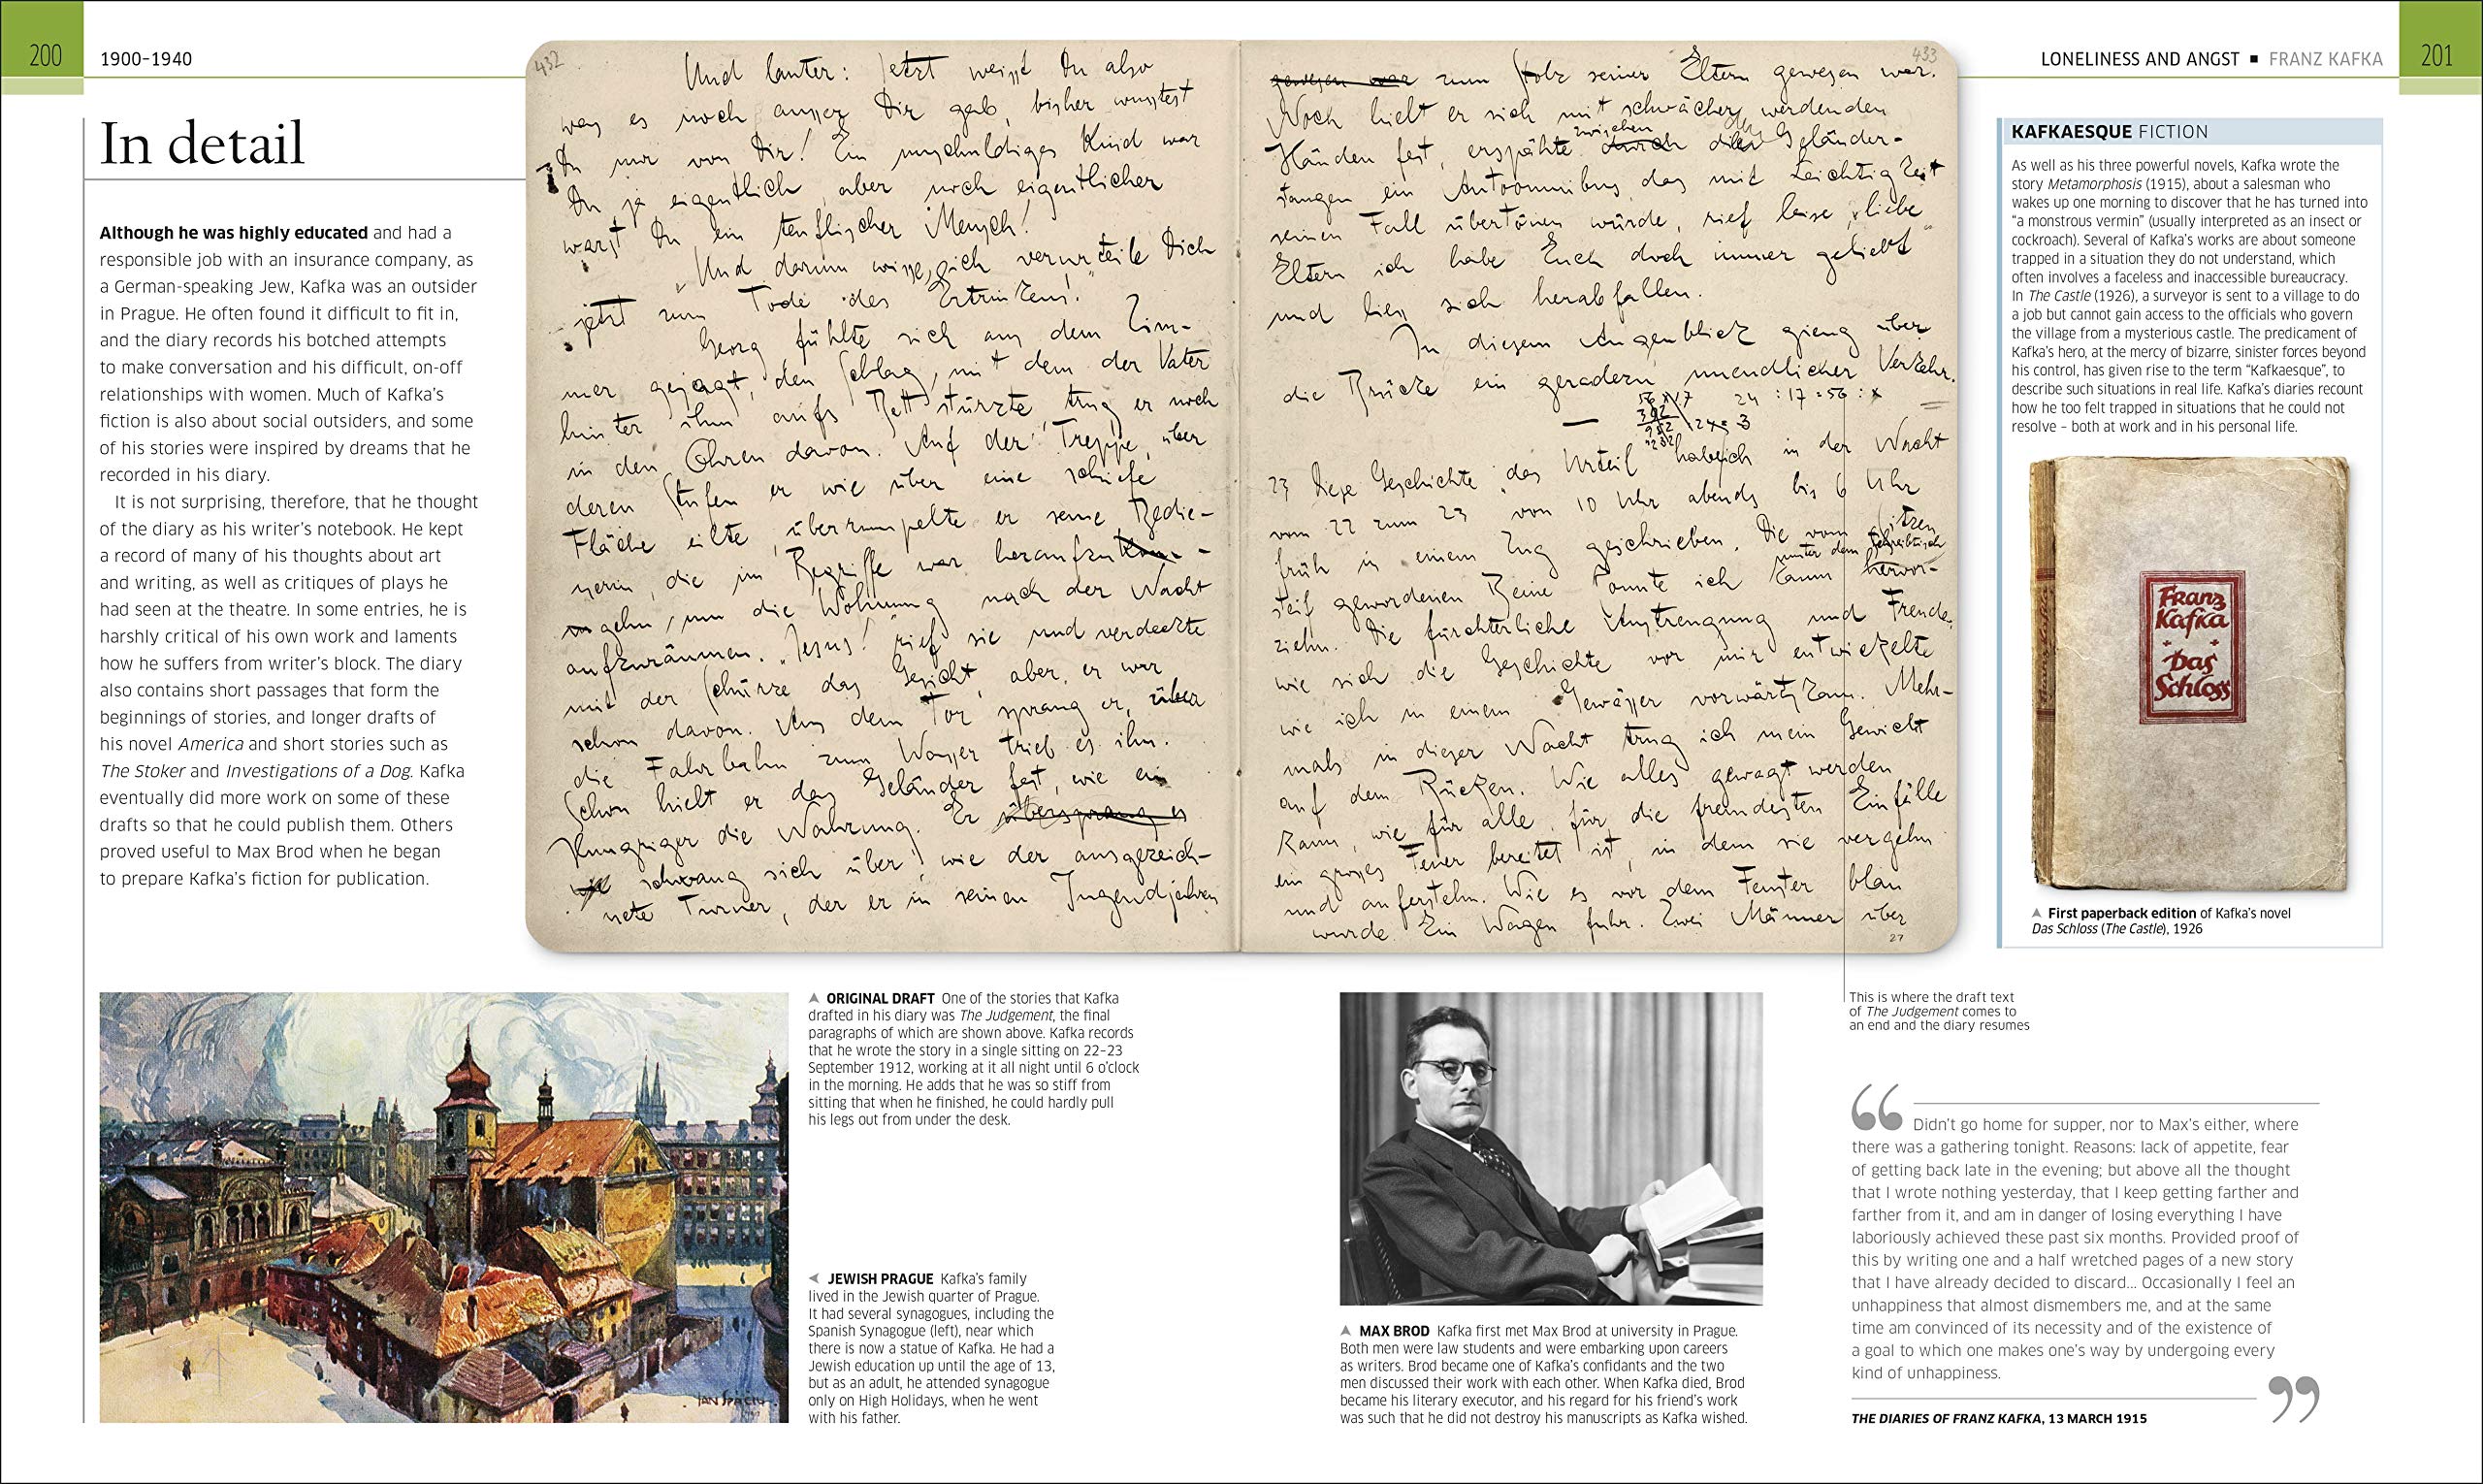 200
1900–1940
In detail
Although he was highly educated and had a
responsible job with an insurance company, as
a German-speaking Jew, Kafka was an outsider
in Prague. He often found it difficult to fit in,
and the diary records his botched attempts
to make conversation and his difficult, on-off
relationships with women. Much of Kafka's
fiction is also about social outsiders, and some
of his stories were inspired by dreams that he
recorded in his diary.
It is not surprising, therefore, that he thought
of the diary as his writer's notebook. He kept
a record of many of his thoughts about art
and writing, as well as critiques of plays he
had seen at the theatre. In some entries, he is
harshly critical of his own work and laments
how he suffers from writer's block. The diary
also contains short passages that form the
beginnings of stories, and longer drafts of
his novel America and short stories such as
The Stoker and Investigations of a Dog. Kafka
eventually did more work on some of these
drafts so that he could publish them. Others
proved useful to Max Brod when he began
to prepare Kafka's fiction for publication.
432
Und lauter: Jetzt weisst Du also
was es noch ausser Dir gab, bisher wusstest
Du nur von Dir! Ein unschuldiges Kind war
Du ja eigentlich, aber noch eigentlicher
warst Du ein teuflischer Mensch!
„Und darum wisse, ich verurteile Dich
jetzt zum Tode des Ertrinkens!"
Georg fühlte sich aus dem Zim-
mer gejagt, den Schlag, mit dem der Vater
hinter ihm aufs Bett stürzte trug er noch
in den Ohren davon. Auf der Treppe, über
deren Stufen er wie über eine schiefe
Fläche eilte, überrumpelte er seine Bedie-
nerin, die im Begriffe war heraufzu
gehn, um die Wohnung nach der Nacht
aufzuräumen. „Jesus!" rief sie und verdeckte
mit der Schürze das Gesicht, aber er war
schon davon. Aus dem Tor sprang er, über
die Fahrbahn zum Wasser trieb es ihn.
Schon hielt er das Geländer fest, wie ein
Hungriger die Nahrung. Er übersprang es
schwang sich über, wie der ausgezeich-
nete Turner, der er in seinen Jugendjahren
433
gewesen war zum Stolz seiner Eltern gewesen war.
Noch hielt er sich mit schwächer werdenden
Händen fest, erspähte zwischen durch den Geländer-
stangen ein Autoomnibus, das mit Leichtigkeit
seinen Fall übertönen würde, rief leise „liebe
Eltern ich habe Euch doch immer geliebt"
und liess sich herabfallen.
In diesem Augenblick gieng über
die Brücke ein geradezu unendlicher Verkehr.
56 x 17
24 : 17 = 56 : x
392
952 : 24 = 3
23 Diese Geschichte „das Urteil" habe ich in der Nacht
vom 22 zum 23 von 10 Uhr abends bis 6 Uhr
früh in einem Zug geschrieben. Die vom Sitzen
steif gewordenen Beine konnte ich kaum unter dem Schreibtisch hervor-
ziehn. Die fürchterliche Anstrengung und Freude,
wie sich die Geschichte vor mir entwickelte
wie ich in einem Gewässer vorwärtskam. Mehr-
mals in dieser Nacht trug ich mein Gewicht
auf dem Rücken. Wie alles gewagt werden
kann, wie für alle, für die fremdesten Einfälle
ein grosses Feuer bereitet ist, in dem sie vergehn
und auferstehn. Wie es vor dem Fenster blau
wurde. Ein Wagen fuhr. Zwei Männer über
27
LONELINESS AND ANGST ■ FRANZ KAFKA
201
KAFKAESQUE FICTION
As well as his three powerful novels, Kafka wrote the
story Metamorphosis (1915), about a salesman who
wakes up one morning to discover that he has turned into
“a monstrous vermin” (usually interpreted as an insect or
cockroach). Several of Kafka's works are about someone
trapped in a situation they do not understand, which
often involves a faceless and inaccessible bureaucracy.
In The Castle (1926), a surveyor is sent to a village to do
a job but cannot gain access to the officials who govern
the village from a mysterious castle. The predicament of
Kafka's hero, at the mercy of bizarre, sinister forces beyond
his control, has given rise to the term “Kafkaesque”, to
describe such situations in real life. Kafka's diaries recount
how he too felt trapped in situations that he could not
resolve – both at work and in his personal life.
Franz
Kafka
Das
Schloss
First paperback edition of Kafka's novel
Das Schloss (The Castle), 1926
ORIGINAL DRAFT One of the stories that Kafka
drafted in his diary was The Judgement, the final
paragraphs of which are shown above. Kafka records
that he wrote the story in a single sitting on 22–23
September 1912, working at it all night until 6 o'clock
in the morning. He adds that he was so stiff from
sitting that when he finished, he could hardly pull
his legs out from under the desk.
JEWISH PRAGUE Kafka's family
lived in the Jewish quarter of Prague.
It had several synagogues, including the
Spanish Synagogue (left), near which
there is now a statue of Kafka. He had a
Jewish education up until the age of 13,
but as an adult, he attended synagogue
only on High Holidays, when he went
with his father.
MAX BROD Kafka first met Max Brod at university in Prague.
Both men were law students and were embarking upon careers
as writers. Brod became one of Kafka's confidants and the two
men discussed their work with each other. When Kafka died, Brod
became his literary executor, and his regard for his friend's work
was such that he did not destroy his manuscripts as Kafka wished.
This is where the draft text
of The Judgement comes to
an end and the diary resumes
“ Didn't go home for supper, nor to Max's either, where
there was a gathering tonight. Reasons: lack of appetite, fear
of getting back late in the evening; but above all the thought
that I wrote nothing yesterday, that I keep getting farther and
farther from it, and am in danger of losing everything I have
laboriously achieved these past six months. Provided proof of
this by writing one and a half wretched pages of a new story
that I have already decided to discard... Occasionally I feel an
unhappiness that almost dismembers me, and at the same
time am convinced of its necessity and of the existence of
a goal to which one makes one's way by undergoing every
kind of unhappiness. ”
THE DIARIES OF FRANZ KAFKA, 13 MARCH 1915